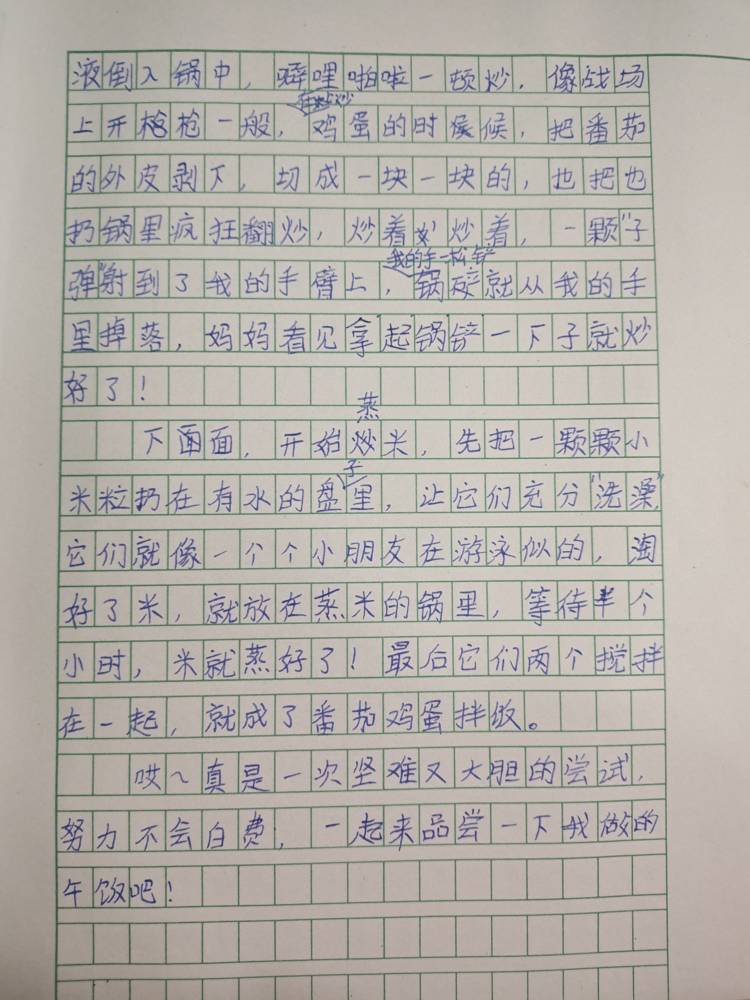 液倒入锅中，噼哩啪啦一顿炒，像战场
上开枪枪一般，在炒鸡蛋的时侯候，把番茄
的外皮剥下，切成一块一块的，也把也
扔锅里疯狂翻炒，炒着炒着，一颗“子
弹”射到了我的手臂上，我的手一松铲锅铲就从我的手
里掉落，妈妈看见拿起锅铲一下子就炒
好了！
下面面，开始蒸米，先把一颗颗小
米粒扔在有水的盘子里，让它们充分“洗澡”，
它们就像一个个小朋友在游泳似的，淘
好了米，就放在蒸米的锅里，等待半个
小时，米就蒸好了！最后它们两个搅拌
在一起，就成了番茄鸡蛋拌饭。
哎～真是一次坚难又大胆的尝试，
努力不会白费，一起来品尝一下我做的
午饭吧！